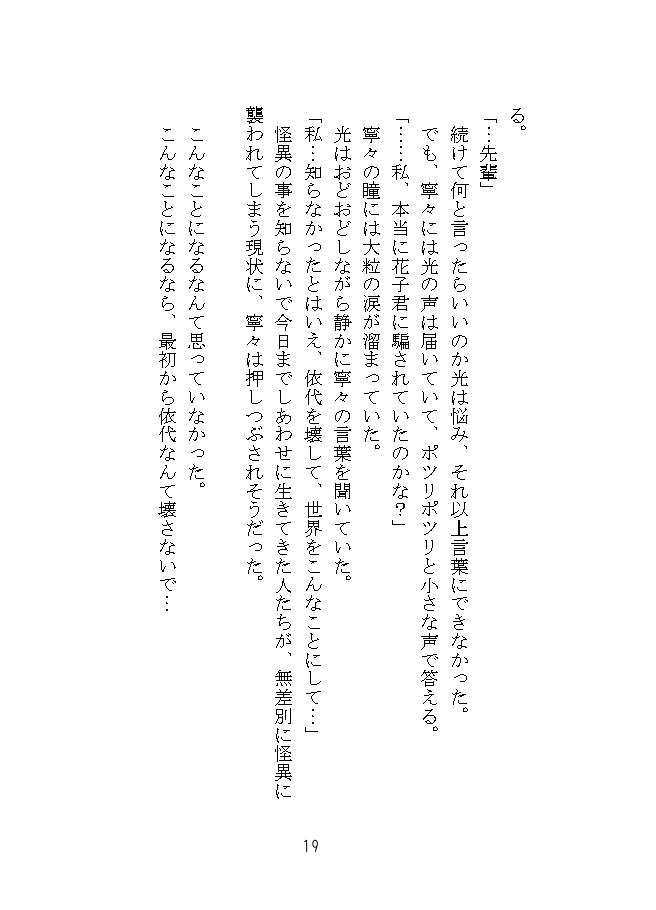 る。
「…先輩」
続けて何と言ったらいいのか光は悩み、それ以上言葉にできなかった。
でも、寧々には光の声は届いていて、ポツリポツリと小さな声で答える。
「……私、本当に花子君に騙されていたのかな？」
寧々の瞳には大粒の涙が溜まっていた。
光はおどおどしながら静かに寧々の言葉を聞いていた。
「私…知らなかったとはいえ、依代を壊して、世界をこんなことにして…」
怪異の事を知らないで今日までしあわせに生きてきた人たちが、無差別に怪異に
襲われてしまう現状に、寧々は押しつぶされそうだった。
こんなことになるなんて思っていなかった。
こんなことになるなら、最初から依代なんて壊さないで…
19